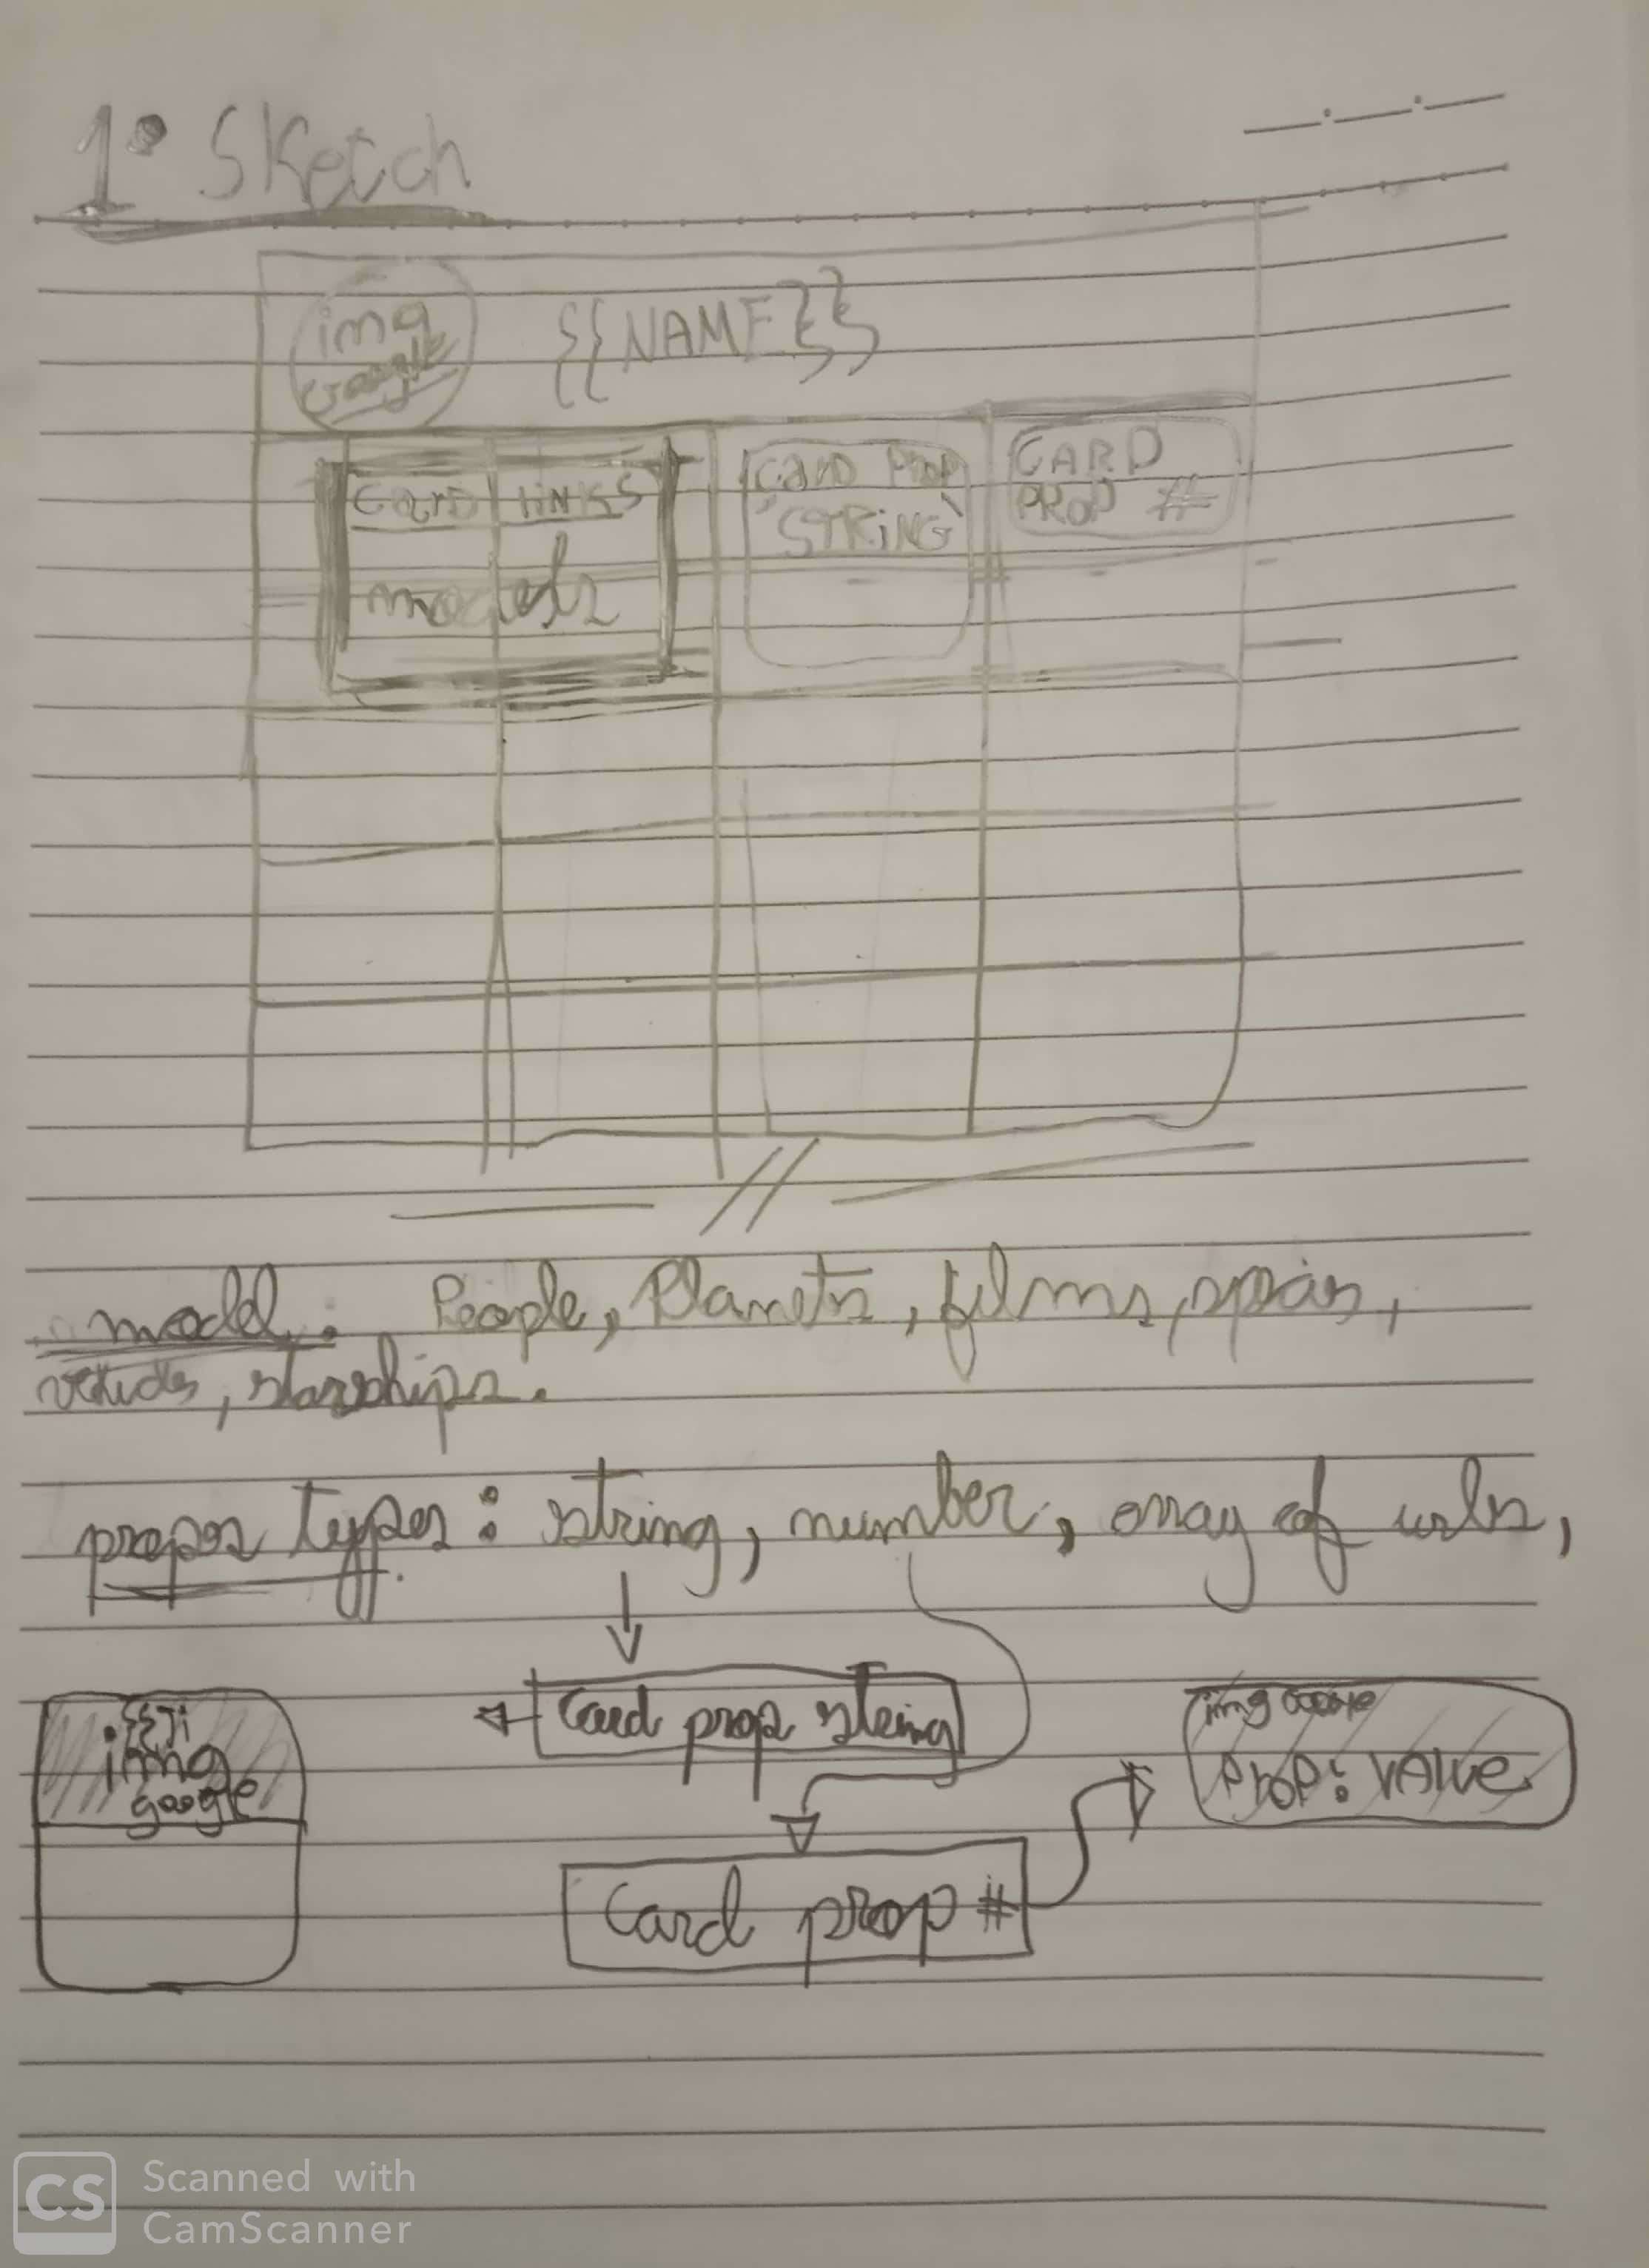 1º Sketch
img
Google
{{NAME}}
CARD LINKS
models
CARD PROP
'STRING'
CARD
PROP #
model: People, Planets, films,
vehicles, starships.
props types: string, number, array of urls,
Card prop string
img
google
img Google
PROP: VALUE
Card prop #
CS
Scanned with
CamScanner